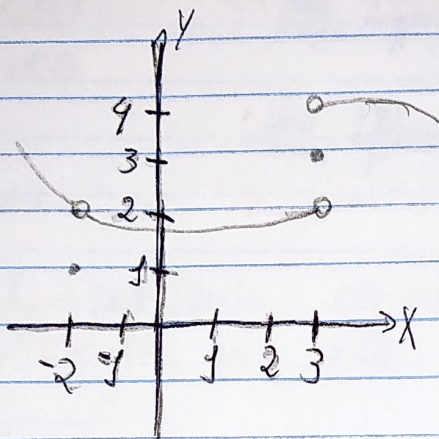 Y
4
3
2
1
X
-2 -1 1 2 3